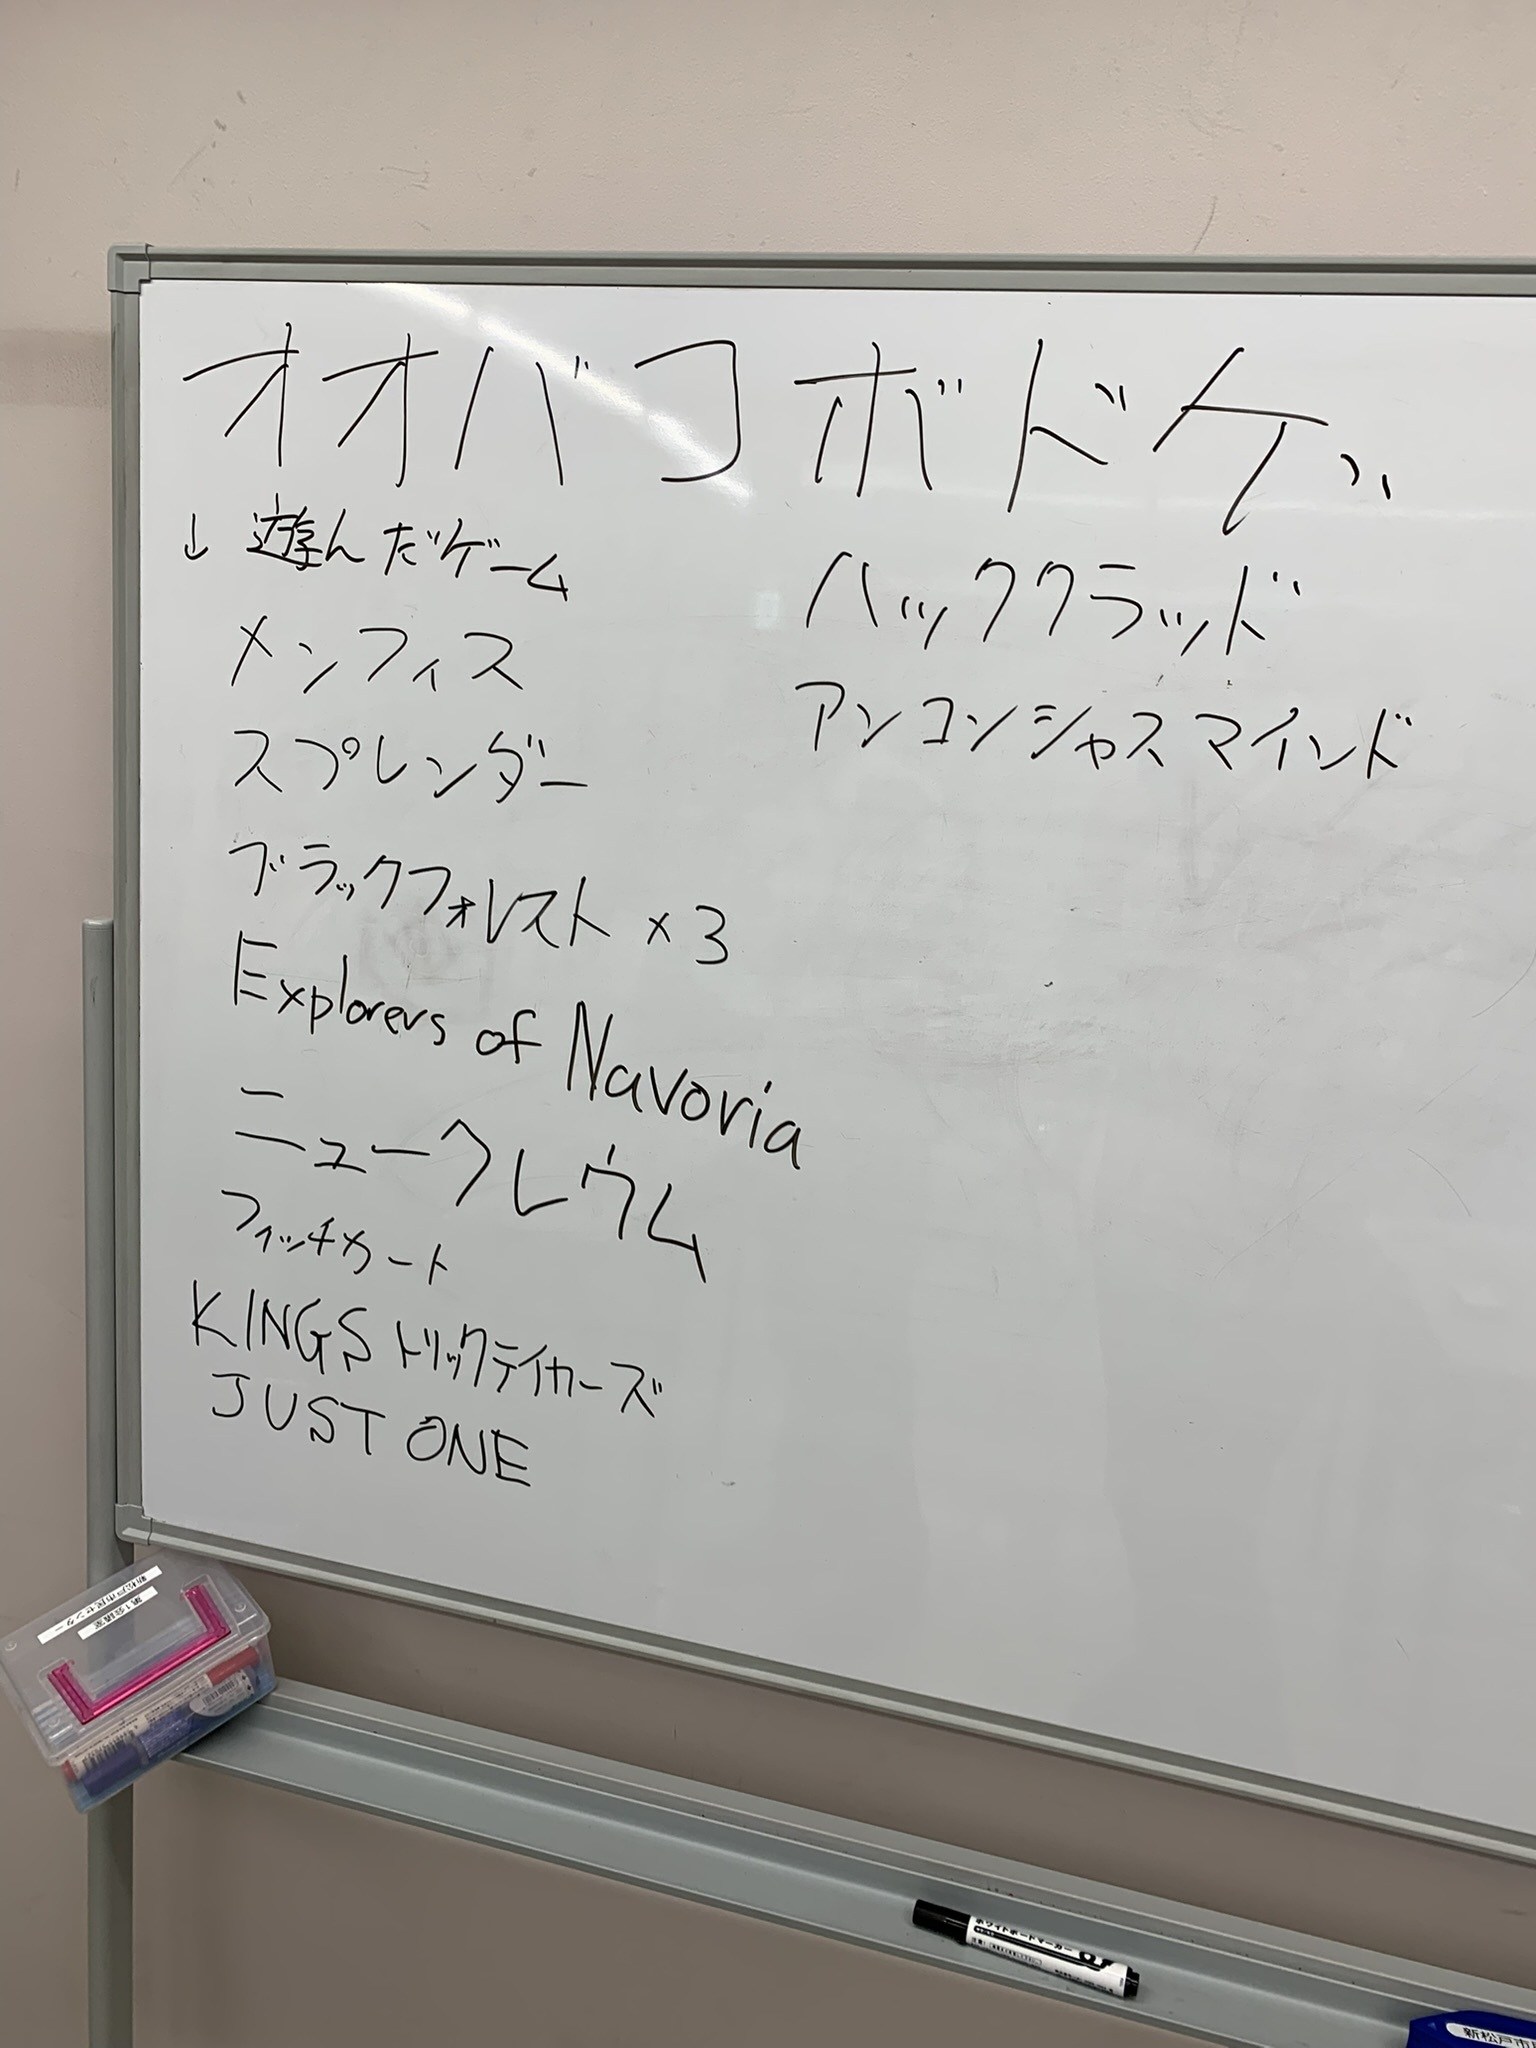 オオバコ ボドゲ
↓ 遊んだゲーム
メンフィス
スプレンダー
ブラックフォレスト ×3
Explorers of Navoria
ニュークレウム
フィッチカート
KINGS トリックテイカーズ
JUST ONE
ハッククラッド
アンコンシャスマインド
新松戸市民センター
第1会議室
ホワイトボードマーカー
新松戸市